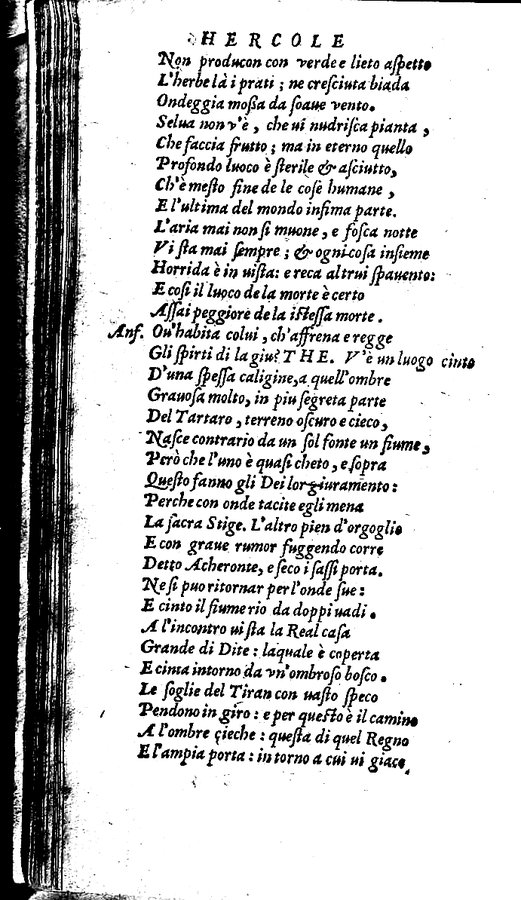 HERCOLE
Non producon con verde e lieto aſpetto
L'herbe là i prati ; ne creſciuta biada
Ondeggia moßa da ſoaue vento.
Selua non v'è , che ui nudriſca pianta ,
Che faccia frutto ; ma in eterno quello
Profondo luoco è ſterile & aſciutto,
Ch'è meſto fine de le coſe humane ,
E l'ultima del mondo infima parte.
L'aria mai non ſi muoue, e foſca notte
Vi ſta mai ſempre ; & ogni coſa inſieme
Horrida è in uiſta: e reca altrui ſpauento:
E coſi il luoco de la morte è certo
Aſſai peggiore de la iſteſſa morte .
Anf. Ou'habita colui , ch'affrena e regge
Gli ſpirti di la giu? THE. V'è un luogo cinto
D'una ſpeſſa caligine, a quell'ombre
Grauoſa molto, in piu ſegreta parte
Del Tartaro , terreno oſcuro e cieco,
Naſce contrario da un ſol fonte un fiume,
Però che l'uno è quaſi cheto , e ſopra
Queſto fanno gli Dei lor giuramento:
Perche con onde tacite egli mena
La ſacra Stige. L'altro pien d'orgoglio
E con graue rumor fuggendo corre
Detto Acheronte, e ſeco i ſaſſi porta.
Ne ſi puo ritornar per l'onde ſue:
E cinto il fiume rio da doppi uadi .
A l'incontro ui ſta la Real caſa
Grande di Dite : laquale è coperta
E cinta intorno da vn'ombroſo boſco .
Le ſoglie del Tiran con uaſto ſpeco
Pendono in giro : e per queſto è il camino
A l'ombre cieche : queſta di quel Regno
E l'ampia porta : intorno a cui ui giace,